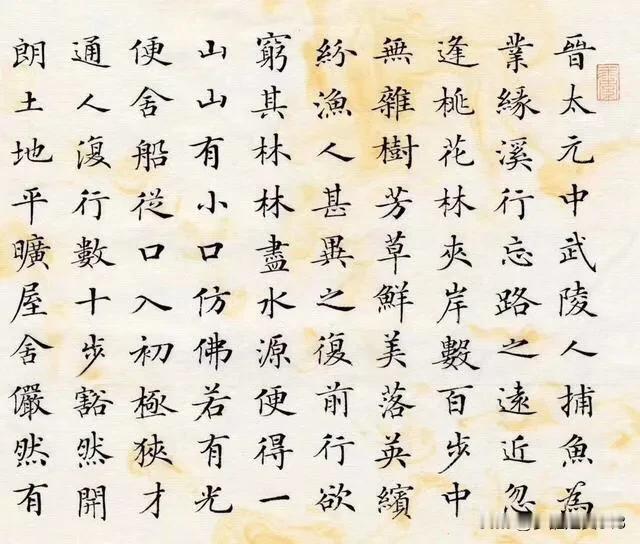 晉太元中武陵人捕魚為
業緣溪行忘路之遠近忽
逢桃花林夾岸數百步中
無雜樹芳草鮮美落英繽
紛漁人甚異之復前行欲
窮其林林盡水源便得一
山山有小口仿佛若有光
便舍船從口入初極狹才
通人復行數十步豁然開
朗土地平曠屋舍儼然有